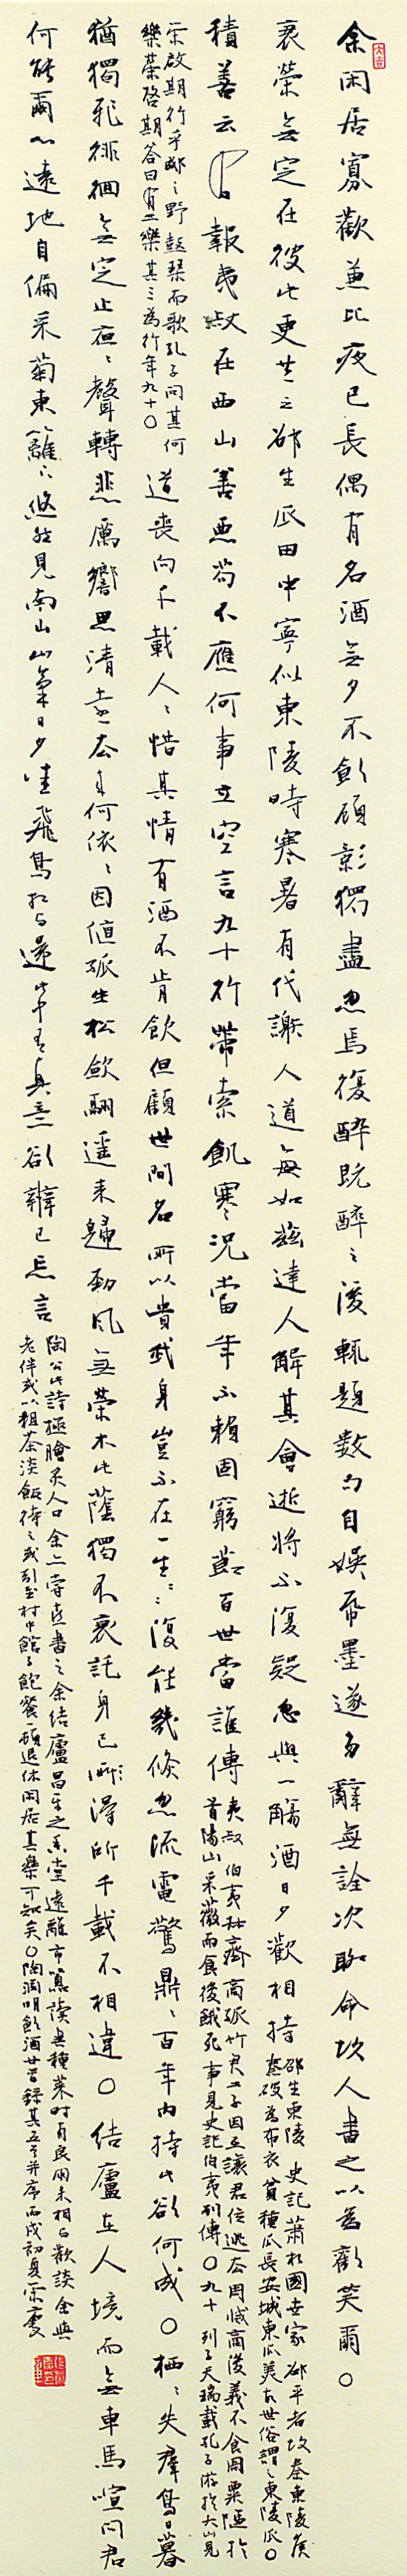 余閑居寡歡兼比夜已長偶有名酒無夕不飲顧影獨盡忽焉復醉既醉之後輒題數句自娛紙墨遂多辭無詮次聊命故人書之以為歡笑爾〇
衰榮無定在彼此更共之邵生瓜田中寧似東陵時寒暑有代謝人道每如茲達人解其會逝將不復疑忽與一觴酒日夕歡相持
邵生東陵 史記蕭相國世家邵平者故秦東陵侯
秦破為布衣貧種瓜長安城東瓜美故世俗謂之東陵瓜〇
積善云有報夷叔在西山善惡苟不應何事立空言九十行帶索飢寒況當年不賴固窮節百世當誰傳
夷叔 伯夷叔齊商孤竹君二子因互讓君位逃去周滅商後義不食周粟隱於
首陽山采薇而食後餓死事見史記伯夷列傳〇九十 列子天瑞載孔子游於大山見
榮啟期行乎郕之野鼓琴而歌孔子問其何
樂榮啓期答曰有三樂其三為行年九十〇
道喪向千載人〻惜其情有酒不肯飲但顧世間名所以貴我身豈不在一生〻〻復能幾倏忽流電驚鼎〻百年內持此欲何成〇栖〻失群鳥日暮
猶獨飛徘徊無定止夜〻聲轉悲厲響思清遠去來何依〻因值孤生松斂翮遙來歸勁風無榮木此蔭獨不衰託身已得所千載不相違〇結廬在人境而無車馬喧問君
何能爾心遠地自偏采菊東籬下悠然見南山山氣日夕佳飛鳥相與還此中有真意欲辨已忘言
陶公此詩極膾炙人口余亦嘗喜書之余結廬昌平之香堂遠離市囂讀書種菜時有良朋來相與歡談余與
老伴或以粗茶淡飯待之或引至村中館子飽餐一頓退休閑居其樂可知矣〇陶淵明飲酒廿首錄其五首并序丙戌初夏
大吉